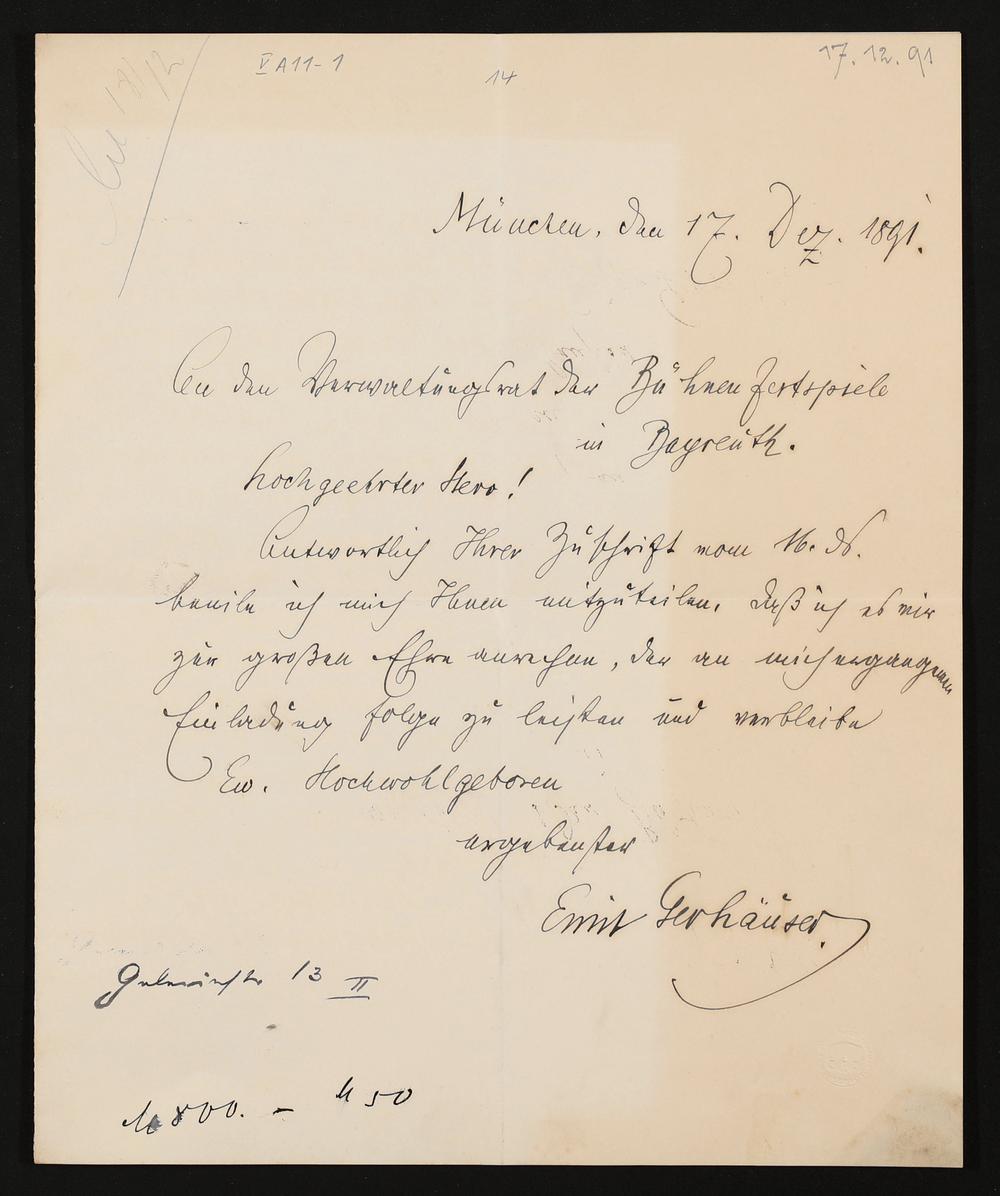 V A 11-1
14
17.12.91
18/12
München, den 17. Dez. 1891.
An den Verwaltungsrat der Bühnenfestspiele
in Bayreuth.
Hochgeehrter Herr!
Antwortlich Ihrer Zuschrift vom 16. ds.
beeile ich mich Ihnen mitzuteilen, daß ich es mir
zur großen Ehre anrechne, der an mich ergangenen
Einladung Folge zu leisten und verbleibe
Ew. Hochwohlgeboren
ergebenster
Emil Gerhäuser.
13 II
M 800. – M 50